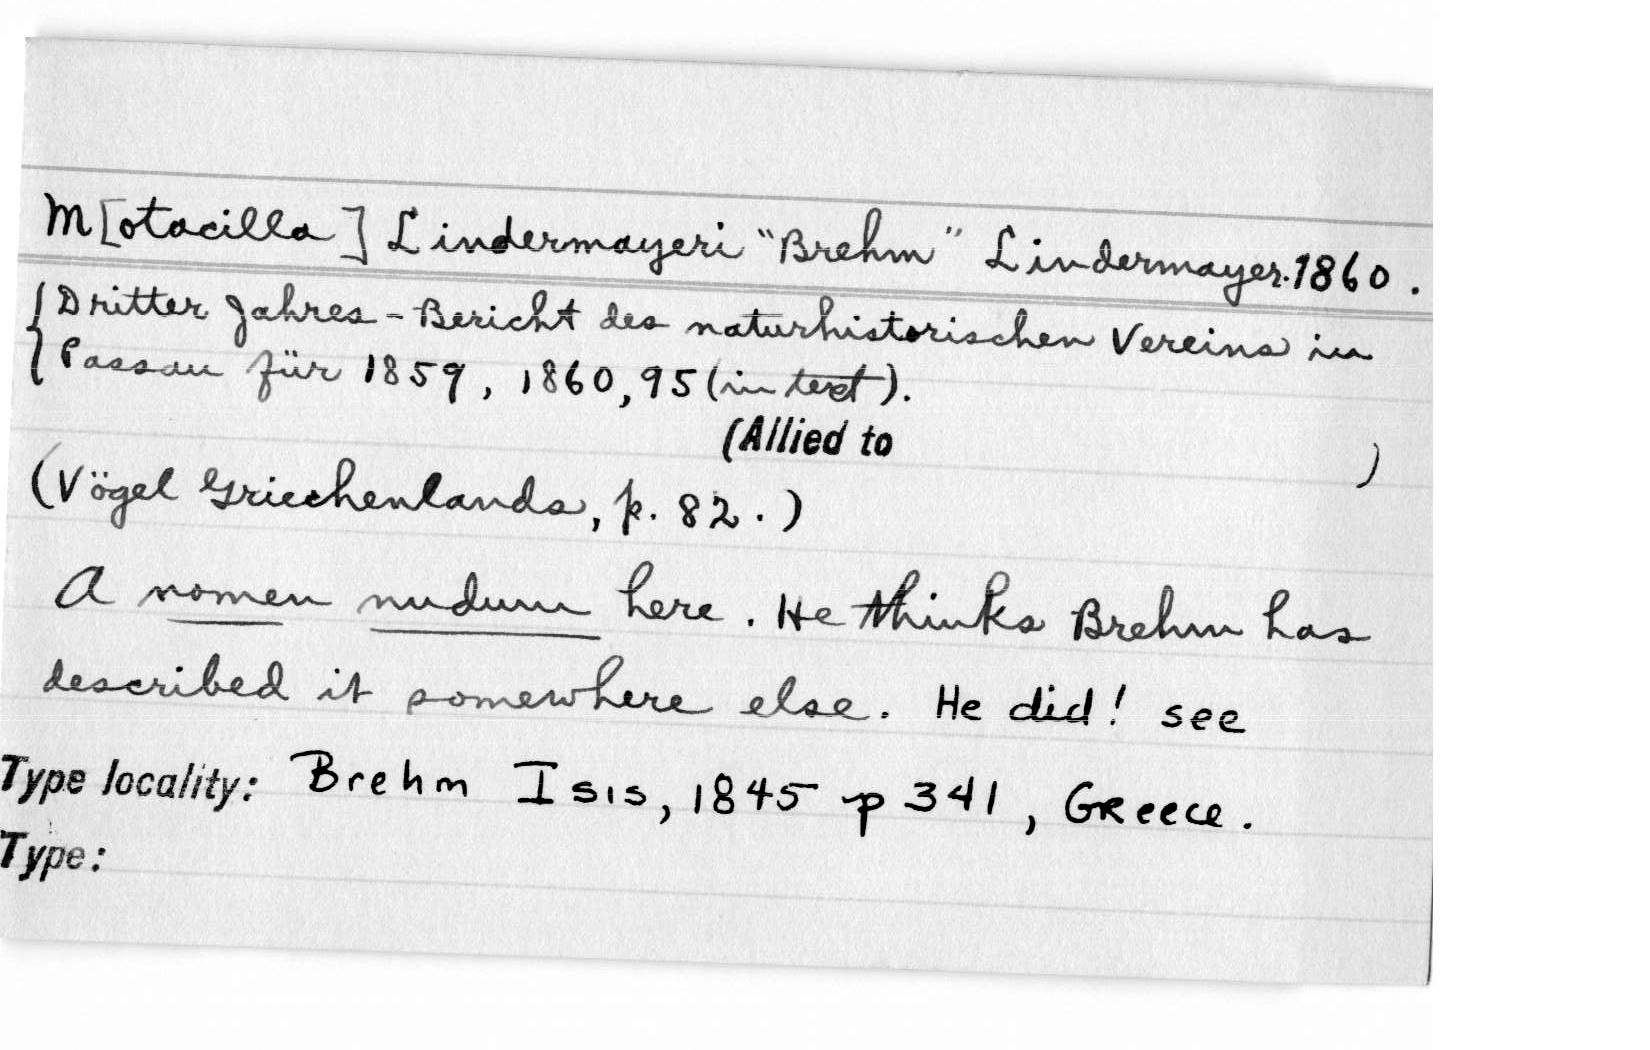 M[otacilla] Lindermayeri "Brehm" Lindermayer. 1860.
Dritter Jahres-Bericht des naturhistorischen Vereins in
Passau für 1859, 1860, 95 (in text).
(Allied to )
(Vögel Griechenlands, p. 82.)
A nomen nudum here. He thinks Brehm has
described it somewhere else. He did! see
Type locality: Brehm Isis, 1845 p 341, Greece.
Type: